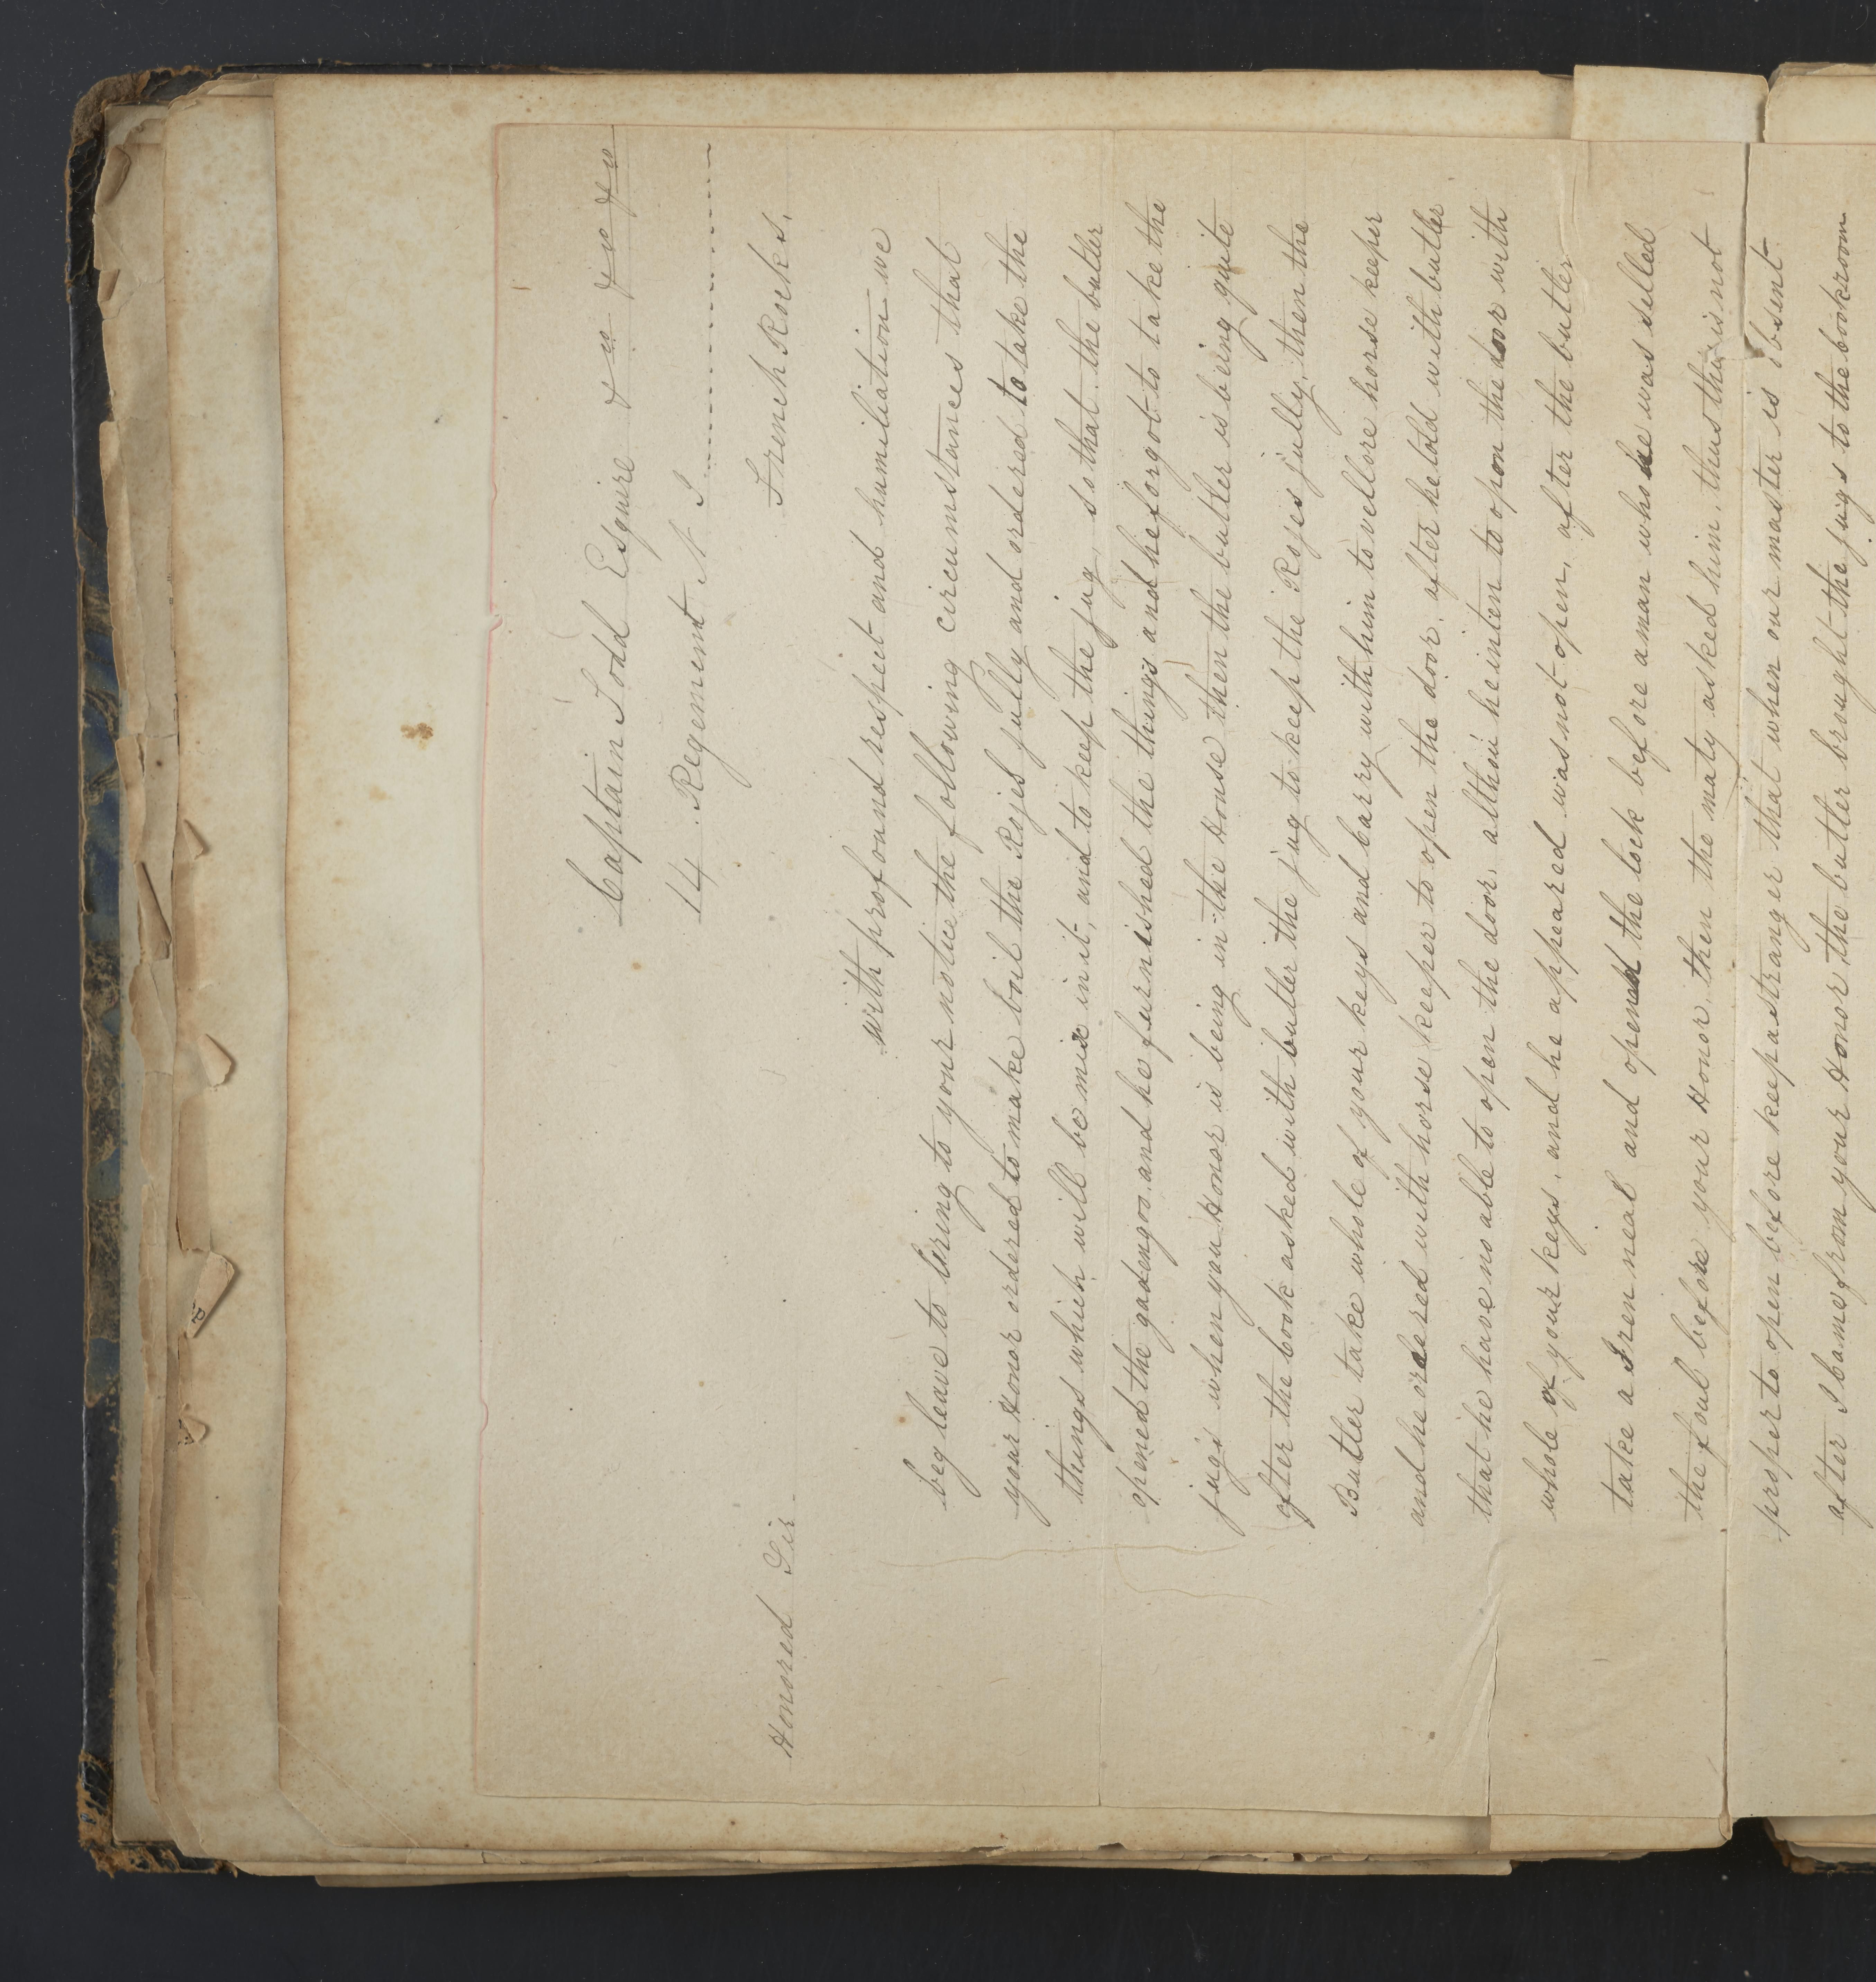 Captain Todd Esquire & co & co & co
14 Regement N I
French Rocks.
Honored Sir
with profound respect and humiliation we
beg leave to bring to your notice the following circumstances that
your Honor ordered to make boil the Rojes fully and ordered to take the
things which will be mix in it, and to keep the jug, so that the butler
opened the gadengoo. and he furnished the things and he forgot to take the
jugs when you Honor is being in the House then the butler is being quite
after the cook asked with butler the jug to keep the Rojes fully, then the
Butler take whole of your keys and carry with him to vellore horse keeper
and he ordered with horse keeper to open the door, after he told with butler
that he have no able to open the door, althou he inten to opon the door with
whole of your keys, and he appeared was not open, after the butler
take a Iren neal and opened the lock before a man who he was selled
the foul before your Honor then the maty asked him, thus this is not
proper to open before keep a stranger that when our master is absent
after I came from your Honor the butler brought the jugs to the bookroom